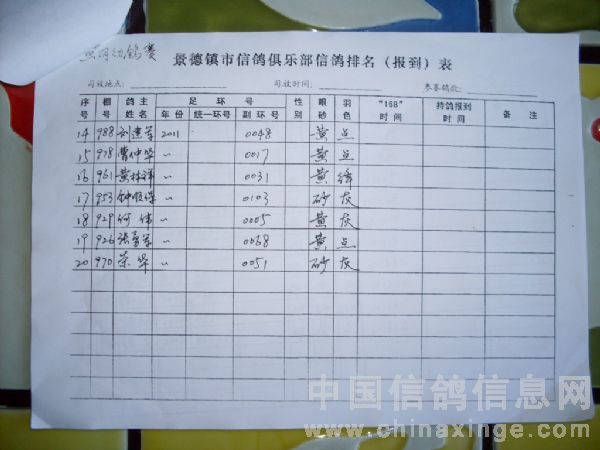 景德镇市信鸽俱乐部信鸽排名（报到）表
司放地点： 司放时间： 参赛鸽数：
序号 棚号 鸽主姓名 足环号 性别 眼砂 羽色 "168"时间 持鸽报到时间 备注
年份 统一环号 副环号
14 988 刘建军 2011 0048 黄 点
15 978 曹仲华 〃 0017 黄 点
16 961 黄林祥 〃 0031 黄 绛
17 953 钟顺 〃 0103 砂 灰
18 929 何伟 〃 0005 黄 灰
19 926 张军 〃 0068 黄 点
20 970 荣华 〃 0051 砂 灰
中国信鸽信息网
www.chinaxinge.com